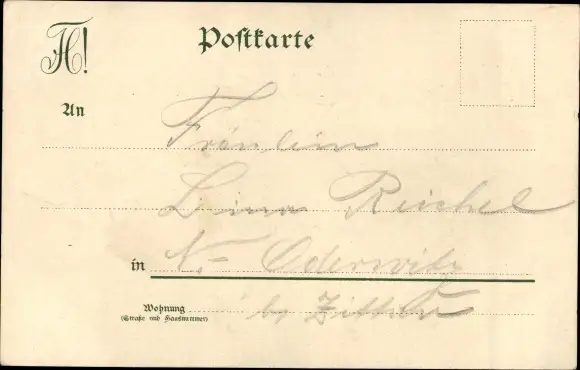 FH! Postkarte
An Fräulein
Lina Reichel
in N.- Oderwitz
Wohnung
(Straße und Hausnummer)
bei Zittau